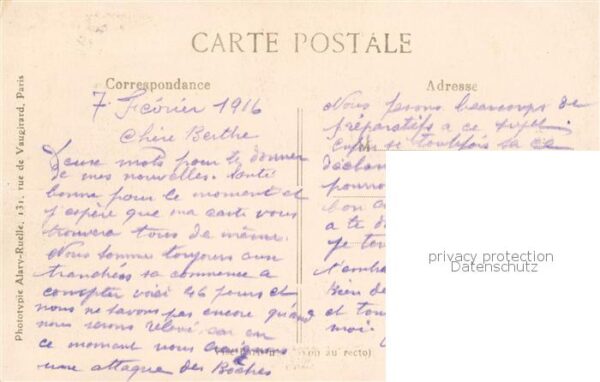 CARTE POSTALE
Correspondance
7 Février 1916
Chère Berthe
Deux mots pour te donner
de mes nouvelles. Santé
bonne pour le moment et
j'espère que ma carte vous
trouvera tous de même.
Nous somme toujours aux
tranchées sa commence a
compter voici 46 jours et
nous ne savons pas encore quand
nous serons relevé car en
ce moment nous craignons
une attaque des Boches
Adresse
Nous fesons beaucoup de
préparatifs a ce sujet
enfin si toutefois sa ce
déclan
pourro
bon
a te d
je ter
t'embr
Bien de
et tou
moi.
Phototypie Alary-Ruelle, 131, rue de Vaugirard, Paris
privacy protection
Datenschutz
au recto)